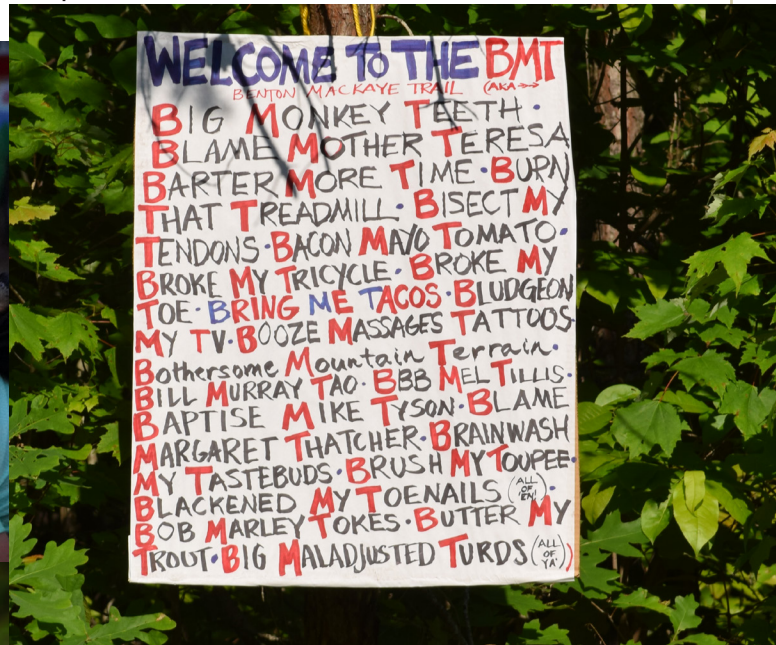 WELCOME TO THE BMT
BENTON MACKAYE TRAIL (AKA →
BIG MONKEY TEETH ·
BLAME MOTHER TERESA
BARTER MORE TIME · BURN
THAT TREADMILL · BISECT MY
TENDONS · BACON MAYO TOMATO ·
BROKE MY TRICYCLE · BROKE MY
TOE · BRING ME TACOS · BLUDGEON
MY TV · BOOZE MASSAGES TATTOOS ·
Bothersome Mountain Terrain ·
BILL MURRAY TAO · BBB MEL TILLIS ·
BAPTISE MIKE TYSON · BLAME
MARGARET THATCHER · BRAINWASH
MY TASTEBUDS · BRUSH MY TOUPEE ·
BLACKENED MY TOENAILS (ALL OF 'EN) ·
BOB MARLEY TOKES · BUTTER MY
TROUT · BIG MALADJUSTED TURDS (ALL OF YA'))